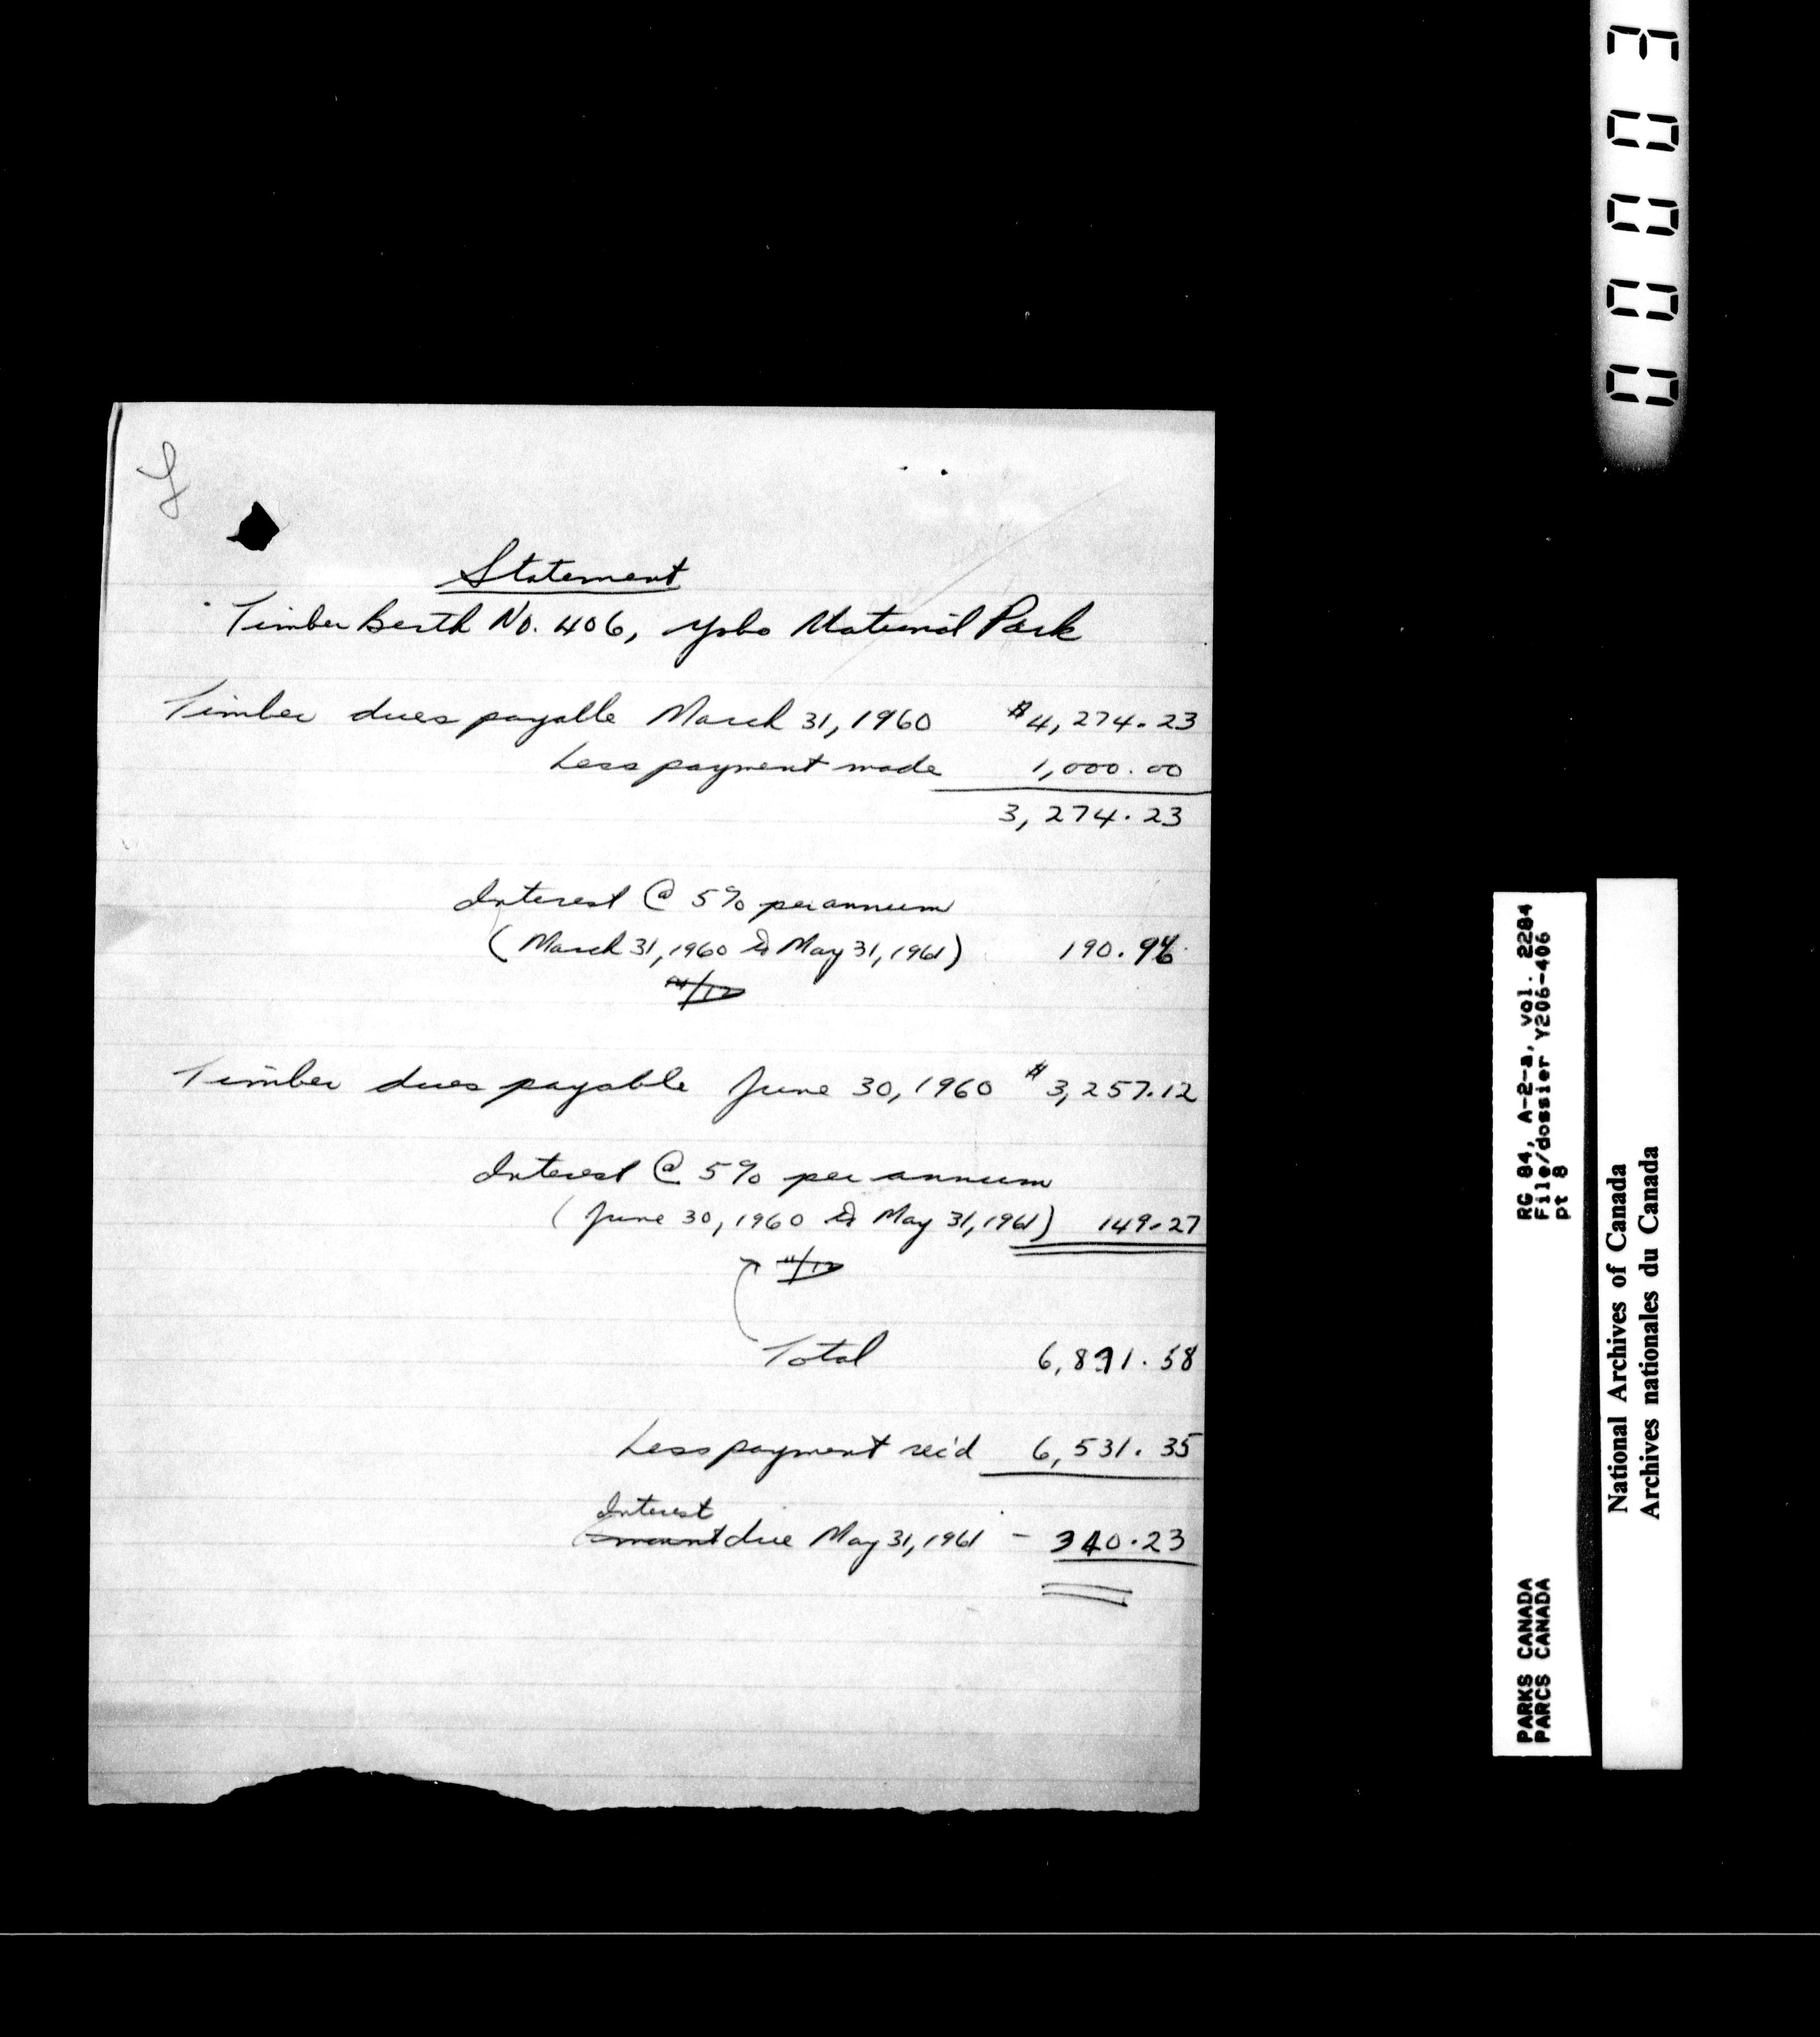 Statement
Timber Berth No. 406, Yoho National Park
Timber dues payable March 31, 1960 $4,274.23
Less payment made 1,000.00
3,274.23
Interest @ 5% per annum
(March 31, 1960 to May 31, 1961) 190.96
14/12
Timber dues payable June 30, 1960 $3,257.12
Interest @ 5% per annum
(June 30, 1960 to May 31, 1961) 149.27
11/12
Total 6,871.58
Less payment rec'd 6,531.35
Interest
Amount due May 31, 1961 - 340.23
00003
RG 84, A-2-a, vol. 2284
File/dossier Y206-406
pt 8
PARKS CANADA
PARCS CANADA
National Archives of Canada
Archives nationales du Canada